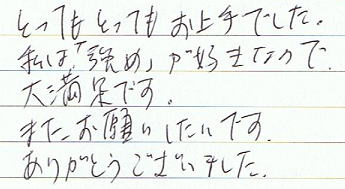 とってもとってもお上手でした。
私は「強め」が好きなので
大満足です。
またお願いしたいです。
ありがとうございました。